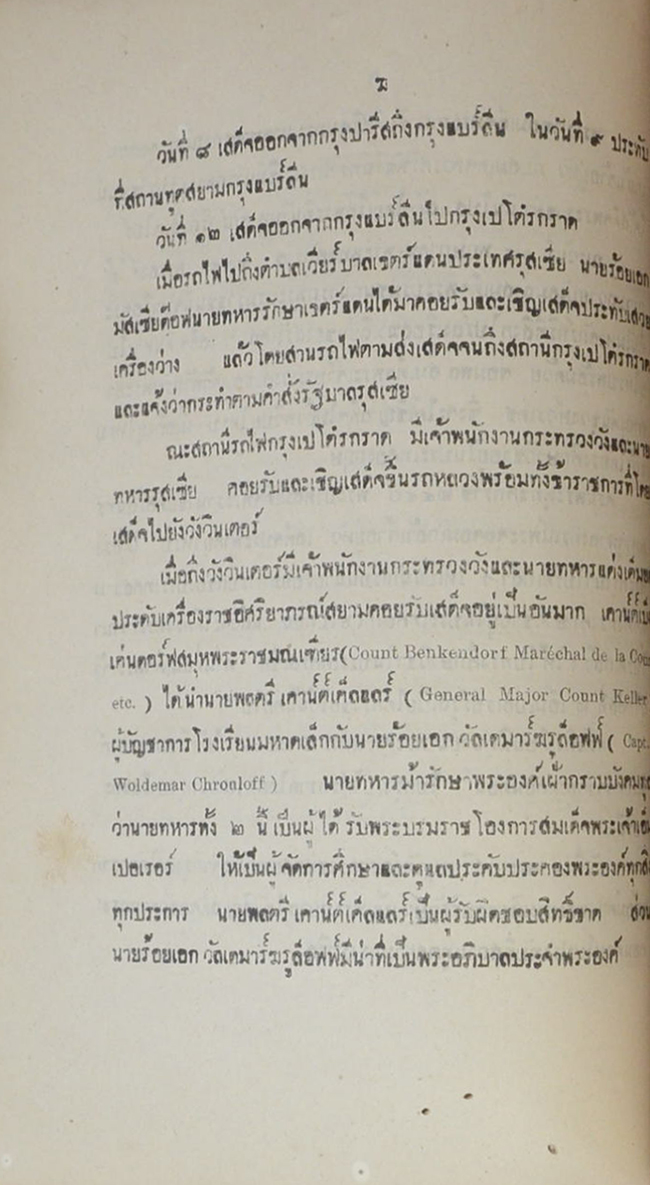 ฆ
วันที่ ๘ เสด็จออกจากกรุงปารีสถึงกรุงแบร์ลิน ในวันที่ ๙ ประทับ
ที่สถานทูตสยามกรุงแบร์ลิน
วันที่ ๑๒ เสด็จออกจากกรุงแบร์ลินไปกรุงเปโตร์กราด
เมื่อรถไฟไปถึงตำบลเวียร์บาลเขตร์แดนประเทศรุสเซีย นายร้อยเอก
มัสเซียตือฟนายทหารรักษาเขตร์แดนได้มาคอยรับและเชิญเสด็จประทับเสวย
เครื่องว่าง แล้วโดยสานรถไฟตามส่งเสด็จจนถึงสถานีกรุงเปโตร์กราด
และแจ้งว่ากระทำตามคำสั่งรัฐบาลรุสเซีย
ณะสถานีรถไฟกรุงเปโตร์กราด มีเจ้าพนักงานกระทรวงวังและนาย
ทหารรุสเซีย คอยรับและเชิญเสด็จขึ้นรถหลวงพร้อมทั้งข้าราชการที่โดย
เสด็จไปยังวังวินเตอร์
เมื่อถึงวังวินเตอร์มีเจ้าพนักงานกระทรวงวังและนายทหารแต่งเต็มยศ
ประดับเครื่องราชอิศริยาภรณ์สยามคอยรับเสด็จอยู่เป็นอันมาก เคาน์ต์เบ็
เค่นดอร์ฟสมุหพระราชมณเฑียร(Count Benkendorf Maréchal de la Cour
etc. ) ได้นำนายพลตรี เคาน์ต์เค็ลแลร์ ( General Major Count Keller
ผู้บัญชาการโรงเรียนมหาดเล็กกับนายร้อยเอก วัลเดมาร์ฆรูล็อฟฟ์ ( Capt.
Woldemar Chrouloff ) นายทหารม้ารักษาพระองค์เฝ้ากราบบังคมทูล
ว่านายทหารทั้ง ๒ นี้ เป็นผู้ ได้ รับพระบรมราช โองการสมเด็จพระเจ้าเอ็ม
เปอเรอร์ ให้เป็นผู้จัดการศึกษาและดูแลประคับประคองพระองค์ทุกสิ่ง
ทุกประการ นายพลตรี เคาน์ต์เค็ลแลร์เป็นผู้รับผิดชอบสิทธิ์ขาด ส่วน
นายร้อยเอก วัลเดมาร์ฆรูล็อฟฟ์มีน่าที่เป็นพระอภิบาลประจำพระองค์